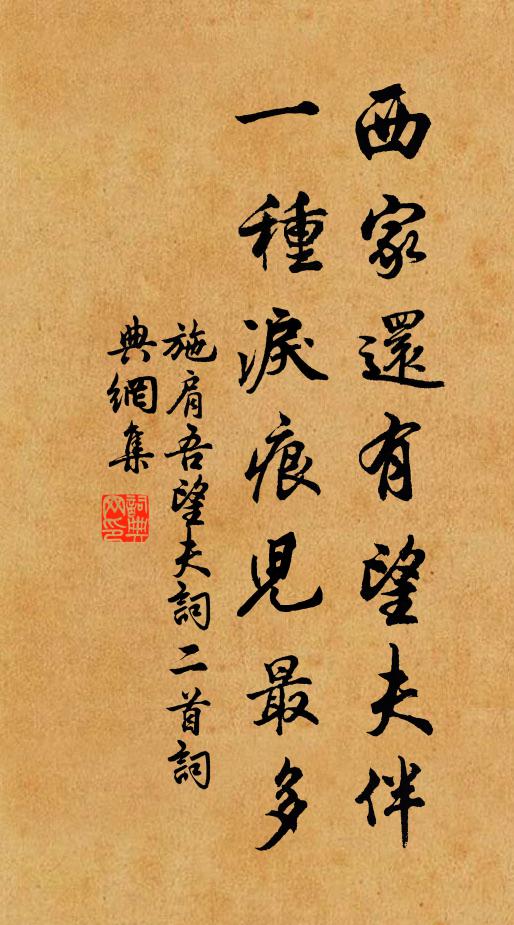 西家還有望夫伴
一種淚痕児最多
施肩吾望夫詞二首詞
典網集
詞典
网印